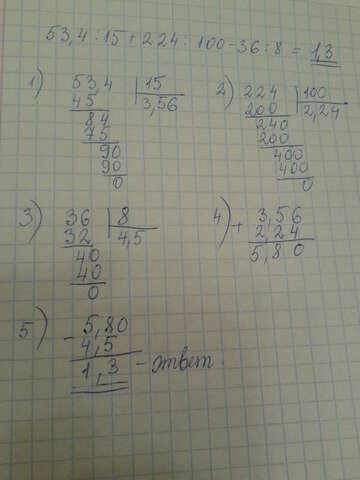 53,4 : 15 + 224 : 100 - 36 : 8 = 1,3
1) 53,4 | 15
45 3,56
84
75
90
90
0
2) 224 | 100
200 2,24
240
200
400
400
0
3) 36 | 8
32 4,5
40
40
0
4) + 3,56
2 24
5,80
5) - 5,80
4,5
1,3 - ответ.